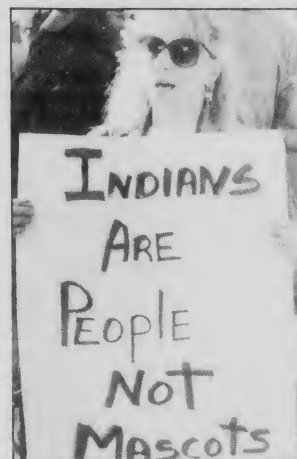 INDIANS
ARE
PEOPlE
NOT
MAScotS